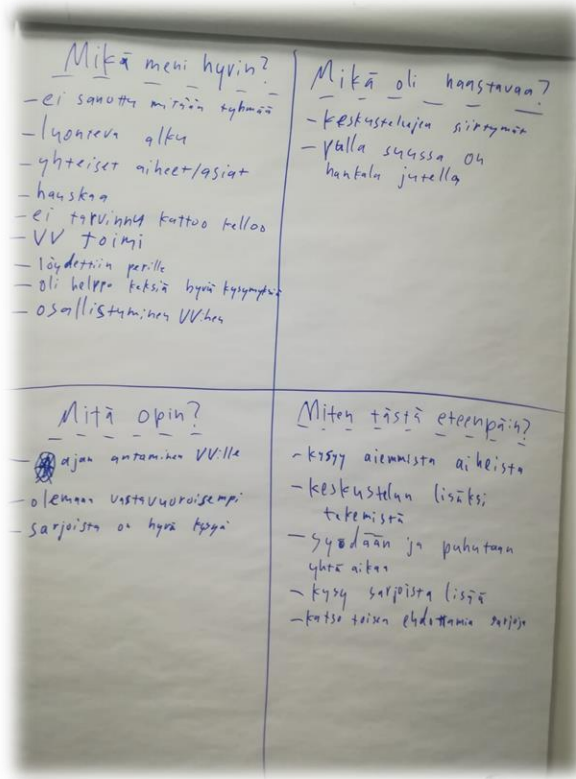 Mikä meni hyvin?
- ei sanottu mitään tyhmää
- luonteva alku
- yhteiset aiheet/asiat
- hauskaa
- ei tarvinnu kattoo kelloo
- VV toimi
- löydettiin perille
- oli helppo keksiä hyviä kysymyksiä
- osallistuminen VV:hen
Mikä oli haastavaa?
- keskustelujen siirtymät
- pulla suussa on
hankala jutella
Mitä opin?
- ajan antaminen VV:lle
- olemaan vastavuoroisempi
- sarjoista on hyvä kysyä
Miten tästä eteenpäin?
- kysyy aiemmista aiheista
- keskustelun lisäksi
tekemistä
- syödään ja puhutaan
yhtä aikaa
- kysy sarjoista lisää
- katso toisen ehdottamia sarjoja